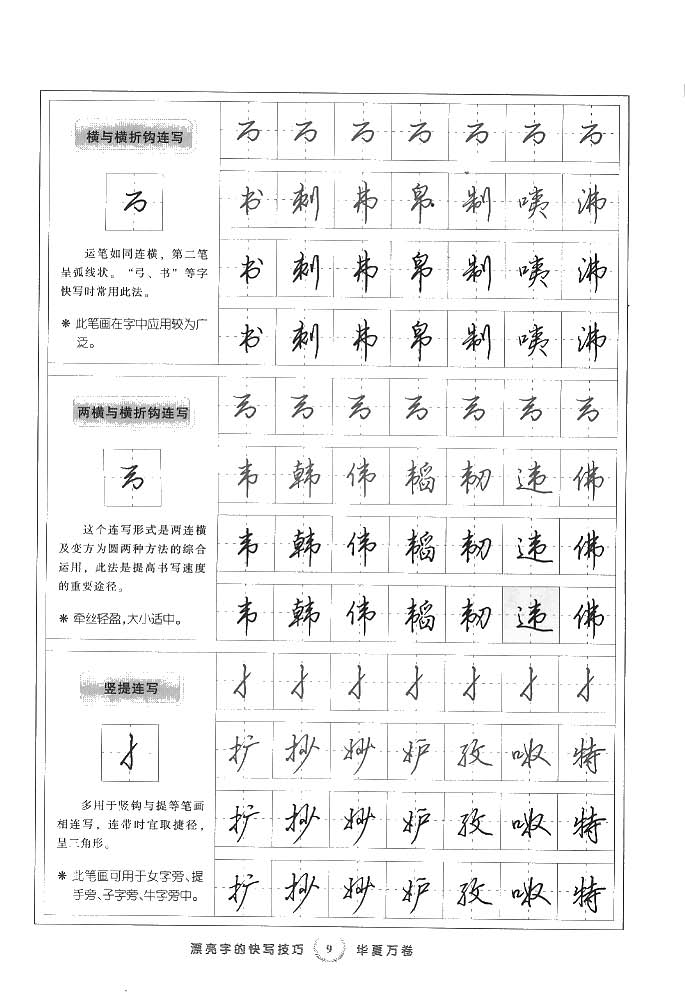 横与横折钩连写
运笔如同连横，第二笔
呈弧线状。“弓、书”等字
快写时常用此法。
※ 此笔画在字中应用较为广
泛。
书 刺 帇 帛 制 咦 沸
书 刺 帇 帛 制 咦 沸
书 刺 帇 帛 制 咦 沸
两横与横折钩连写
这个连写形式是两连横
及变方为圆两种方法的综合
运用，此法是提高书写速度
的重要途径。
※ 牵丝轻盈，大小适中。
韦 韩 伟 韬 韧 违 佛
韦 韩 伟 韬 韧 违 佛
韦 韩 伟 韬 韧 违 佛
竖提连写
多用于竖钩与提等笔画
相连写，连带时宜取捷径，
呈三角形。
※ 此笔画可用于女字旁、提
手旁、子字旁、牛字旁中。
扩 抄 妙 妒 孜 呶 特
扩 抄 妙 妒 孜 呶 特
扩 抄 妙 妒 孜 呶 特
漂亮字的快写技巧 9 华夏万卷